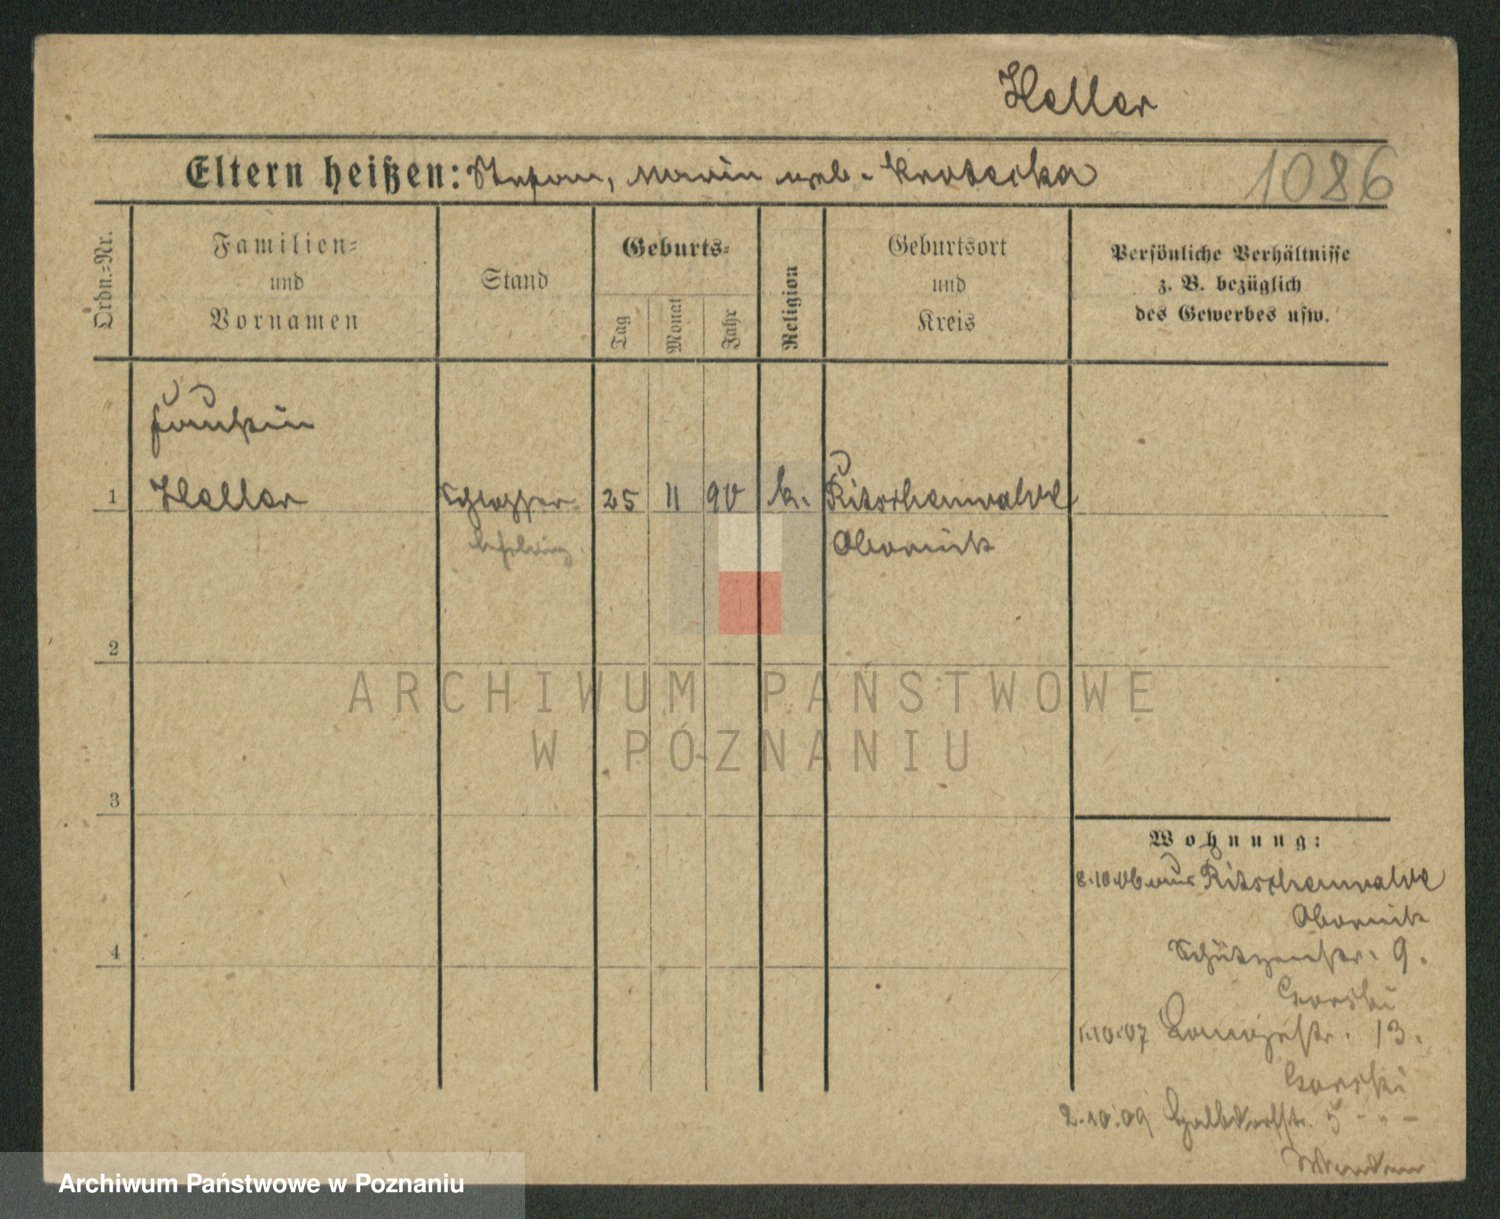 Heller
Eltern heißen: Stefan, Marie geb. Krotecka
1086
Ordn.=Nr.
Familien=
und
Vornamen
Stand
Geburts=
Tag
Monat
Jahr
Religion
Geburtsort
und
Kreis
Persönliche Verhältnisse
z. B. bezüglich
des Gewerbes usw.
1
Heller
Schlosser
25
11
90
k.
Ritschenwalde
Obornik
2
3
4
Wohnung:
8.10.06 aus Ritschenwalde
Obornik
Schützenstr. 9.
Gorski
1.10.07
13.
Gorski
2.10.09 Halbdorfstr. 5
ARCHIWUM PAŃSTWOWE
W POZNANIU
Archiwum Państwowe w Poznaniu